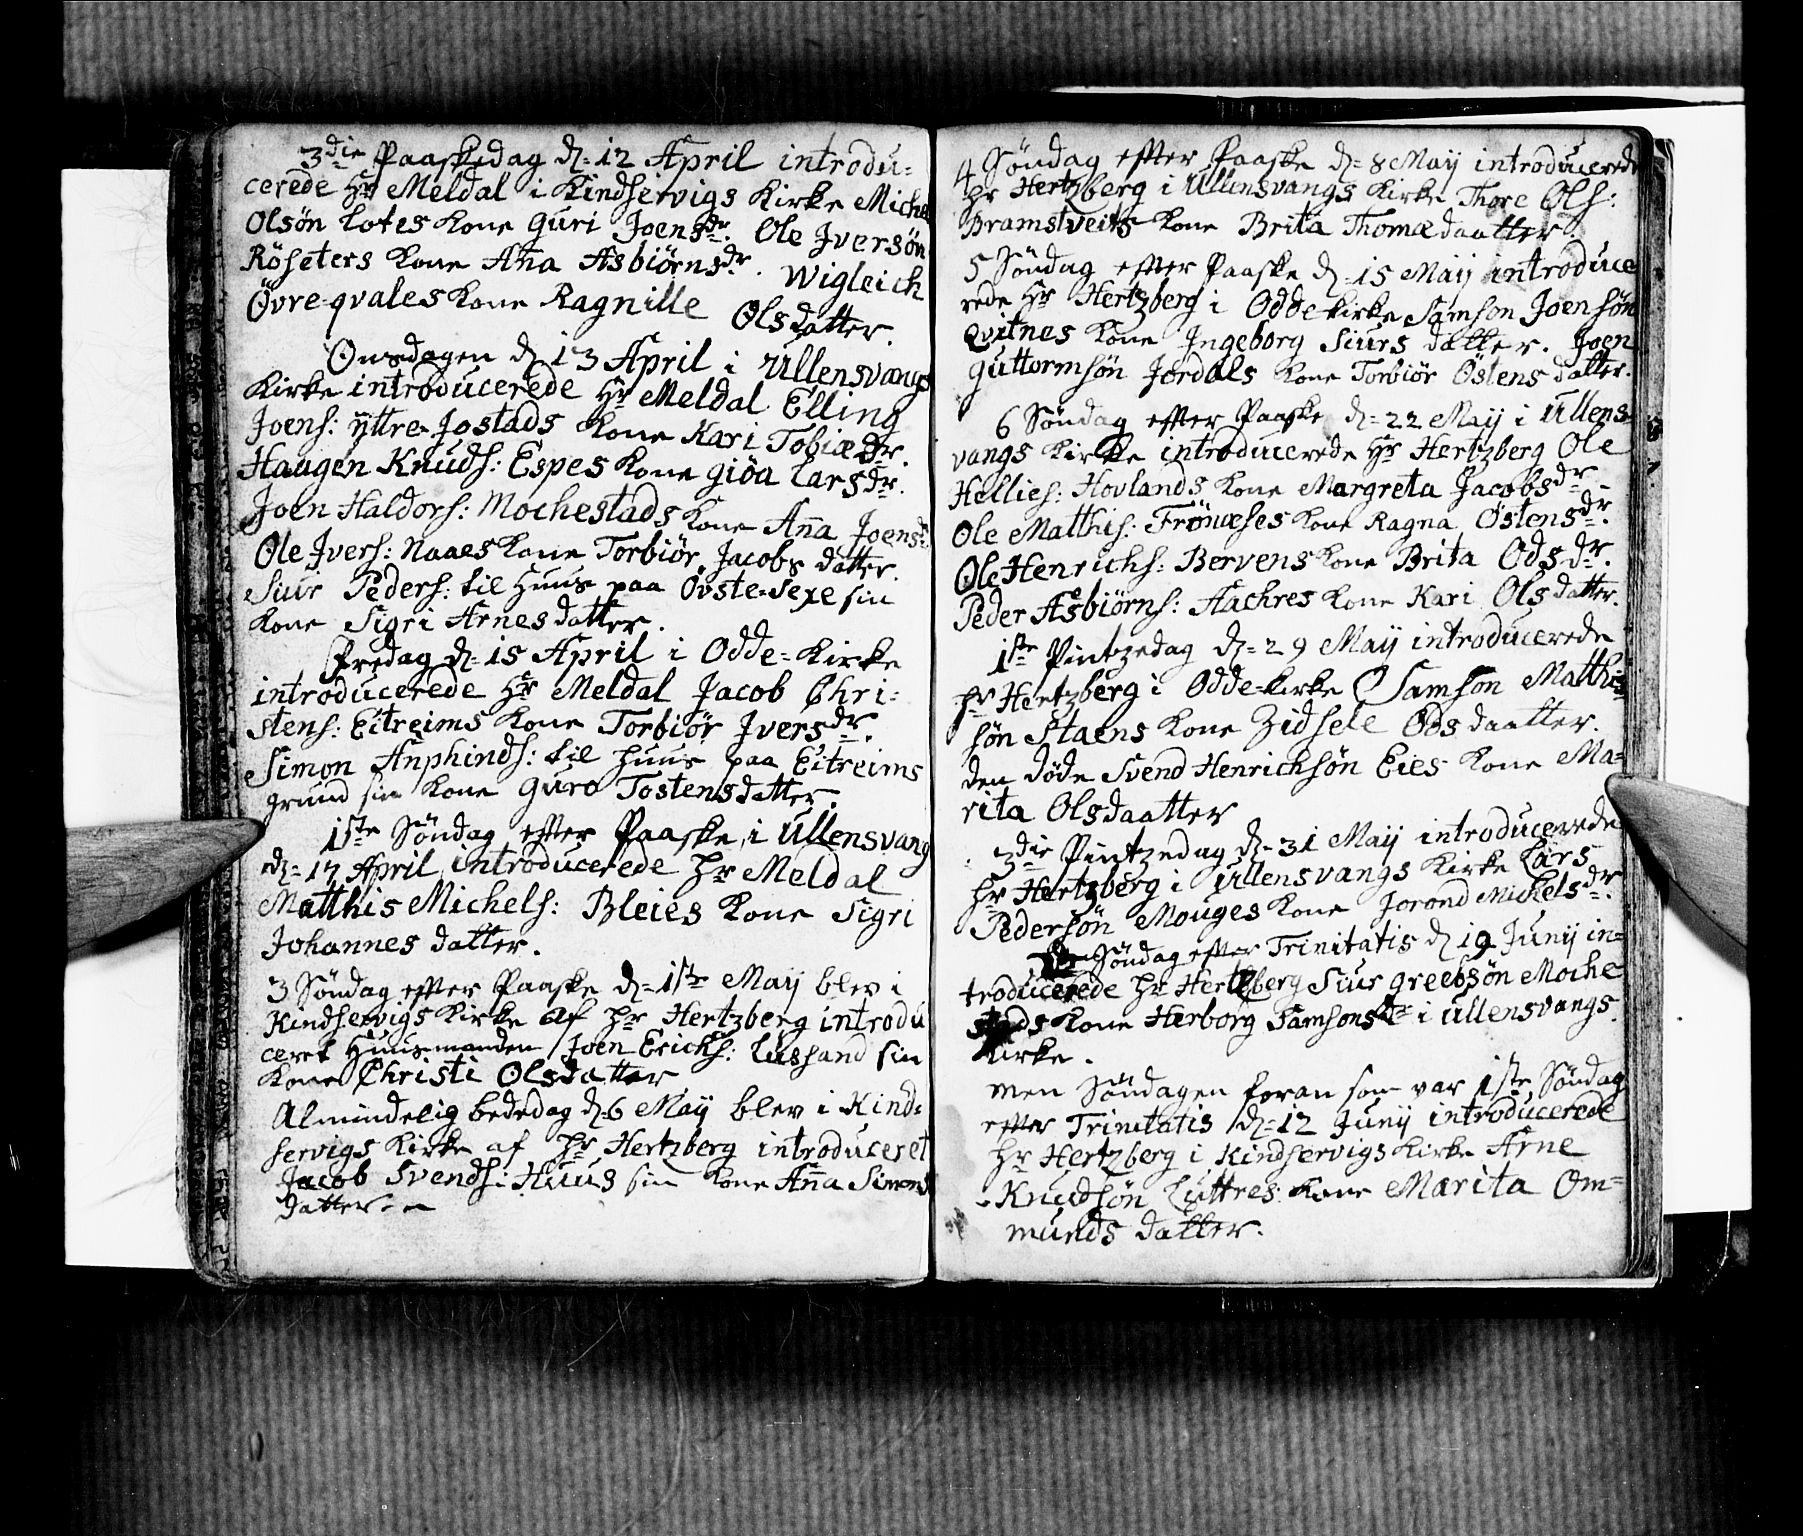 3die Paaskedag d= 12 April introdu=
cerede Hr Meldal i Kindservigs Kirke Michel
Olsøn Lotes Kone Guri Joensdr. Ole Jversøn
Röseters Kone Anna Asbiørnsdr. Wigleich
Övre=qvales Kone Ragnille Olsdatter.
Onsdagen d 13 April i Ullensvangs
Kirke introducerede Hr Meldal Elling
Joens: ÿttre=Jostads Kone Kari Tobiædr.
Haagen Knuds: Espes Kone Giöa Larsdr.
Joen Haldors: Mochestads Kone Anna Joensdr.
Ole Jvers: Naaes Kone Torbiør Jacobs datter.
Siur Peders: til Huus paa Övste=Sexe sin
Kone Sigri Arnesdatter.
Fredag d= 15 April i Odde=Kirke
introducerede Hr Meldal Jacob Chri=
stens: Eitreims Kone Torbiør Jversdr.
Simon Anphinds: til huus paa Eitreims
grund sin Kone Guro Tostensdatter.
1ste Söndag efter Paaske, i Ullensvang
d= 17 April, introducerede Hr Meldal
Matthis Michels: Bleies Kone Sigri
Johannes datter.
3 Söndag efter Paaske d= 1ste Maÿ blev i
Kindservigs Kirke af Hr Hertzberg introdu
ceret Huusmanden Joen Ericks: Lussand sin
Kone Christi Olsdatter
Almindelig bededag d= 6 Maÿ blev i Kind=
servigs Kirke af Hr Hertzberg introduceret
Jacob Svends: Huus sin Kone Anna Simons
datter.
4 Söndag efter Paaske d= 8 Maÿ introducerede
Hr Hertzberg i Ullensvangs Kirke Thore Ols:
Bramstveits Kone Brita Thomædaatter.
5 Söndag efter Paaske d= 15 Maÿ introduce
rede Hr Hertzberg i Odde=Kirke Samson Joensøn
Qvitnes Kone Jngeborg Siurs datter. Joen
Guttormsøn Jordals Kone Torbiør Östens datter.
6 Söndag efter Paaske d= 22 Maÿ i Ullens=
vangs Kirke introducerede Hr Hertzberg Ole
Hellies: Hovlands Kone Margreta Jacobsdr.
Ole Matthis: Frönæses Kone Ragna Östensdr.
Ole Henrichs: Bervens Kone Brita Odsdr.
Peder Asbiørns: Aachres Kone Kari Olsdatter.
1ste Pintzedag d= 29 Maÿ introducerede
Hr Hertzberg i Odde=Kirke Samson Matthis
søn Staens Kone Zidsele Odsdaatter.
den døde Svend Henrichsøn Eies Kone Ma=
rita Olsdaatter
3die Pintzedag d= 31 Maÿ introducerede
Hr Hertzberg i Ullensvangs Kirke Lars
Pedersøn Mouges Kone Jorond Michelsdr.
Söndag efter Trinitatis d 19 Junÿ in=
troducerede Hr Hertzberg Siur Greebsøn Moche
stads Kone Herborg Samsonsdr i Ullensvangs
Kirke.
men Söndagen foran som var 1ste Söndag
efter Trinitatis d= 12 Junÿ introducerede
Hr Hertzberg i Kindservigs Kirke Arne
Knudsøn Luttres Kone Marita Om=
munds datter.